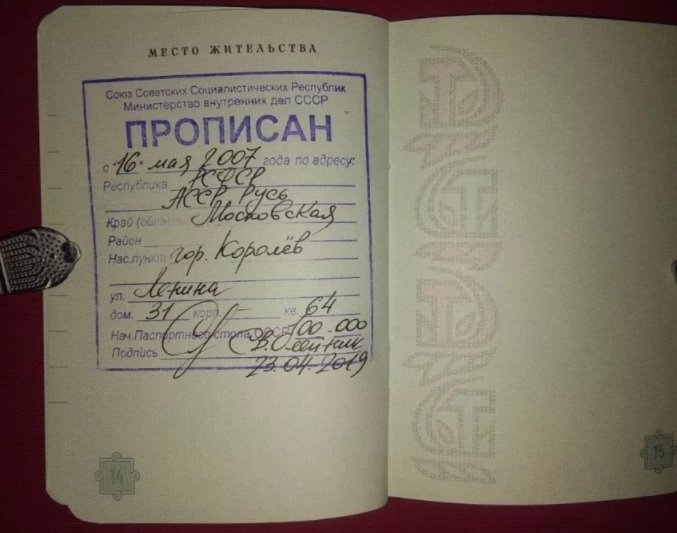 МЕСТО ЖИТЕЛЬСТВА
Союз Советских Социалистических Республик
Министерство внутренних дел СССР
ПРОПИСАН
с "16" мая 2007 года по адресу:
Республика РСФСР
АССР Русь
Край (область) Московская
Район
Нас.пункт гор. Королёв
ул. Ленина
дом. 31 корп. кв. 64
Нач.Паспортного стола СССР 100.000
Подпись В.Олейник
23.04.2019
14
15